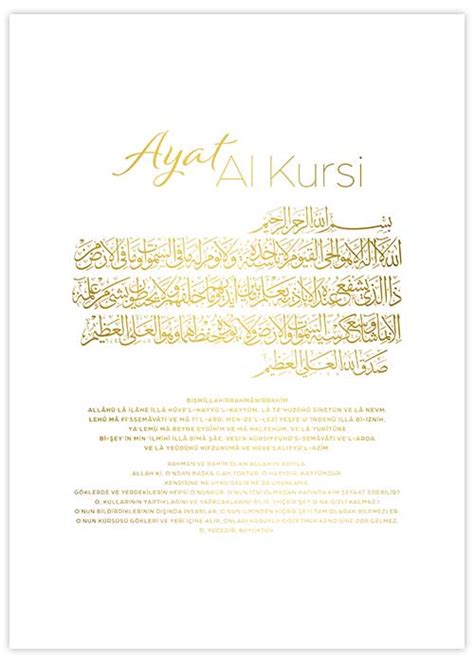 Ayat
Al Kursi
بسم الله الرحمن الرحيم
الله لا إله إلا هو الحي القيوم لا تأخذه سنة ولا نوم له ما في السموات وما في الأرض من
ذا الذي يشفع عنده إلا بإذنه يعلم ما بين أيديهم وما خلفهم ولا يحيطون بشيء من علمه
إلا بما شاء وسع كرسيه السموات والأرض ولا يؤده حفظهما وهو العلي العظيم
صدق الله العلي العظيم
BISMILLAHIRRAHMANIRRAHIM
ALLÂHÜ LÂ İLÂHE İLLÂ HÜVE'L-HAYYÜ'L-KAYYÛM, LÂ TE'HUZÜHÛ SİNETÜN VE LÂ NEVM,
LEHÛ MÂ Fİ'SSEMÂVÂTİ VE MÂ Fİ'L-ARD, MEN ZE'L-LEZÎ YEŞFE'U İNDEHÛ İLLÂ Bİ-İZNİH,
YA'LEMÜ MÂ BEYNE EYDÎHİM VE MÂ HALFEHÜM, VE LÂ YUHÎTÛNE
Bİ-ŞEY'İN MİN 'İLMİHÎ İLLÂ BİMÂ ŞÂE, VESİ'A KÜRSİYYÜHÜ'S-SEMÂVÂTİ VE'L-ARDA
VE LÂ YEÛDÜHÛ HIFZUHUMÂ VE HÜVE'LALİYYÜ'L-AZÎM
RAHMAN VE RAHİM OLAN ALLAH'IN ADIYLA
ALLAH Kİ, O'NDAN BAŞKA İLAH YOKTUR, O, HAYYDIR, KAYYÛMDUR.
KENDİSİNE NE UYKU GELİR NE DE UYUKLAMA.
GÖKLERDE VE YERDEKİLERİN HEPSİ O'NUNDUR. O'NUN İZNİ OLMADAN KATINDA KİM ŞEFAAT EDEBİLİR?
O, KULLARININ YAPTIKLARINI VE YAPACAKLARINI BİLİR. (HİÇBİR ŞEY O'NA GİZLİ KALMAZ.)
O'NUN BİLDİRDİKLERİNİN DIŞINDA İNSANLAR, O'NUN İLMİNDEN HİÇBİR ŞEYİ TAM OLARAK BİLEMEZLER.
O'NUN KÜRSÜSÜ GÖKLERİ VE YERİ İÇİNE ALIR, ONLARI KORUYUP GÖZETMEK KENDİSİNE ZOR GELMEZ.
O, YÜCEDİR, BÜYÜKTÜR